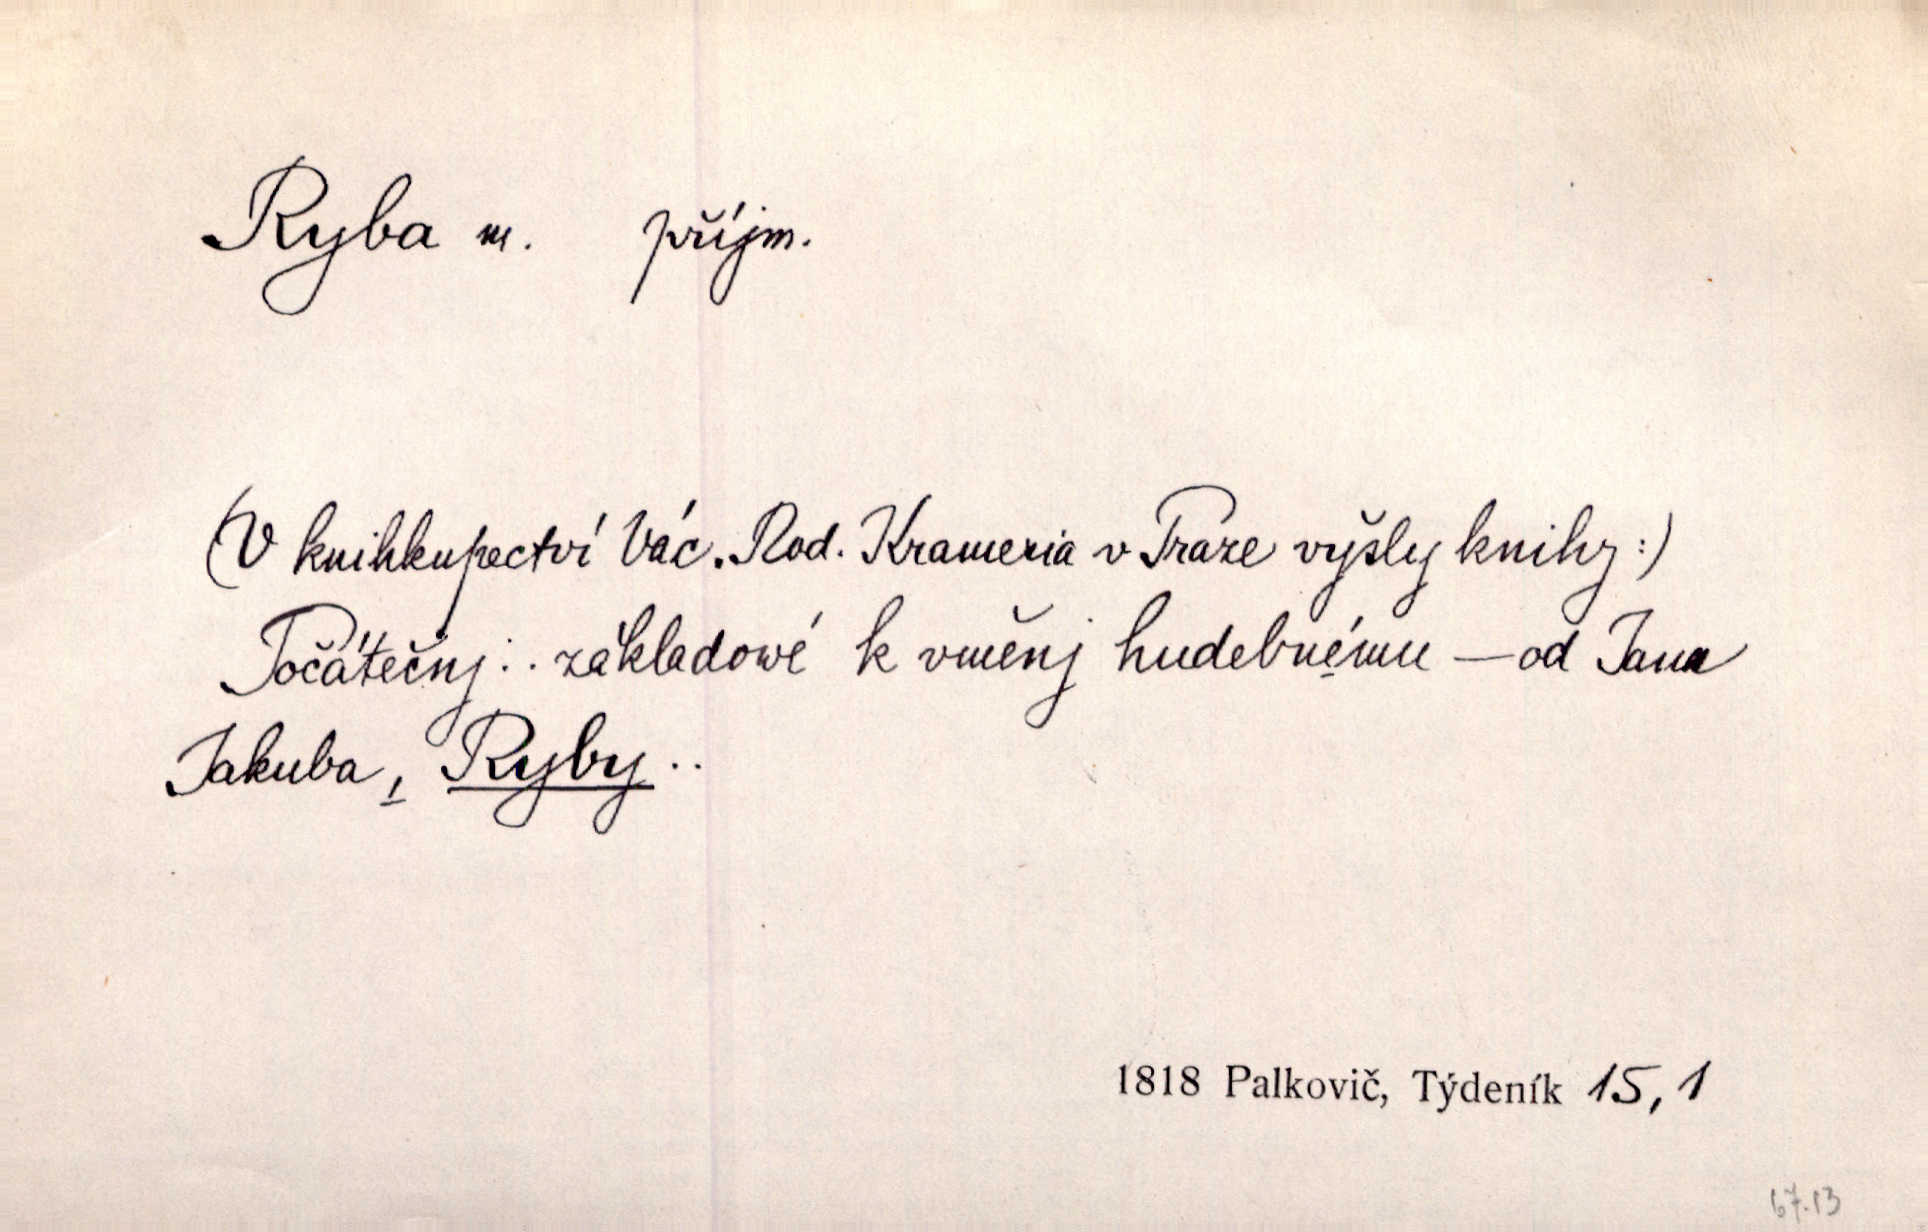 Ryba m. příjm.
(V knihkupectví Vác. Rod. Krameria v Praze vyšly knihy:)
Počátečnj .. základowé k vměnj hudebnému — od Jana
Jakuba, Ryby ..
1818 Palkovič, Týdeník 15,1
67.13